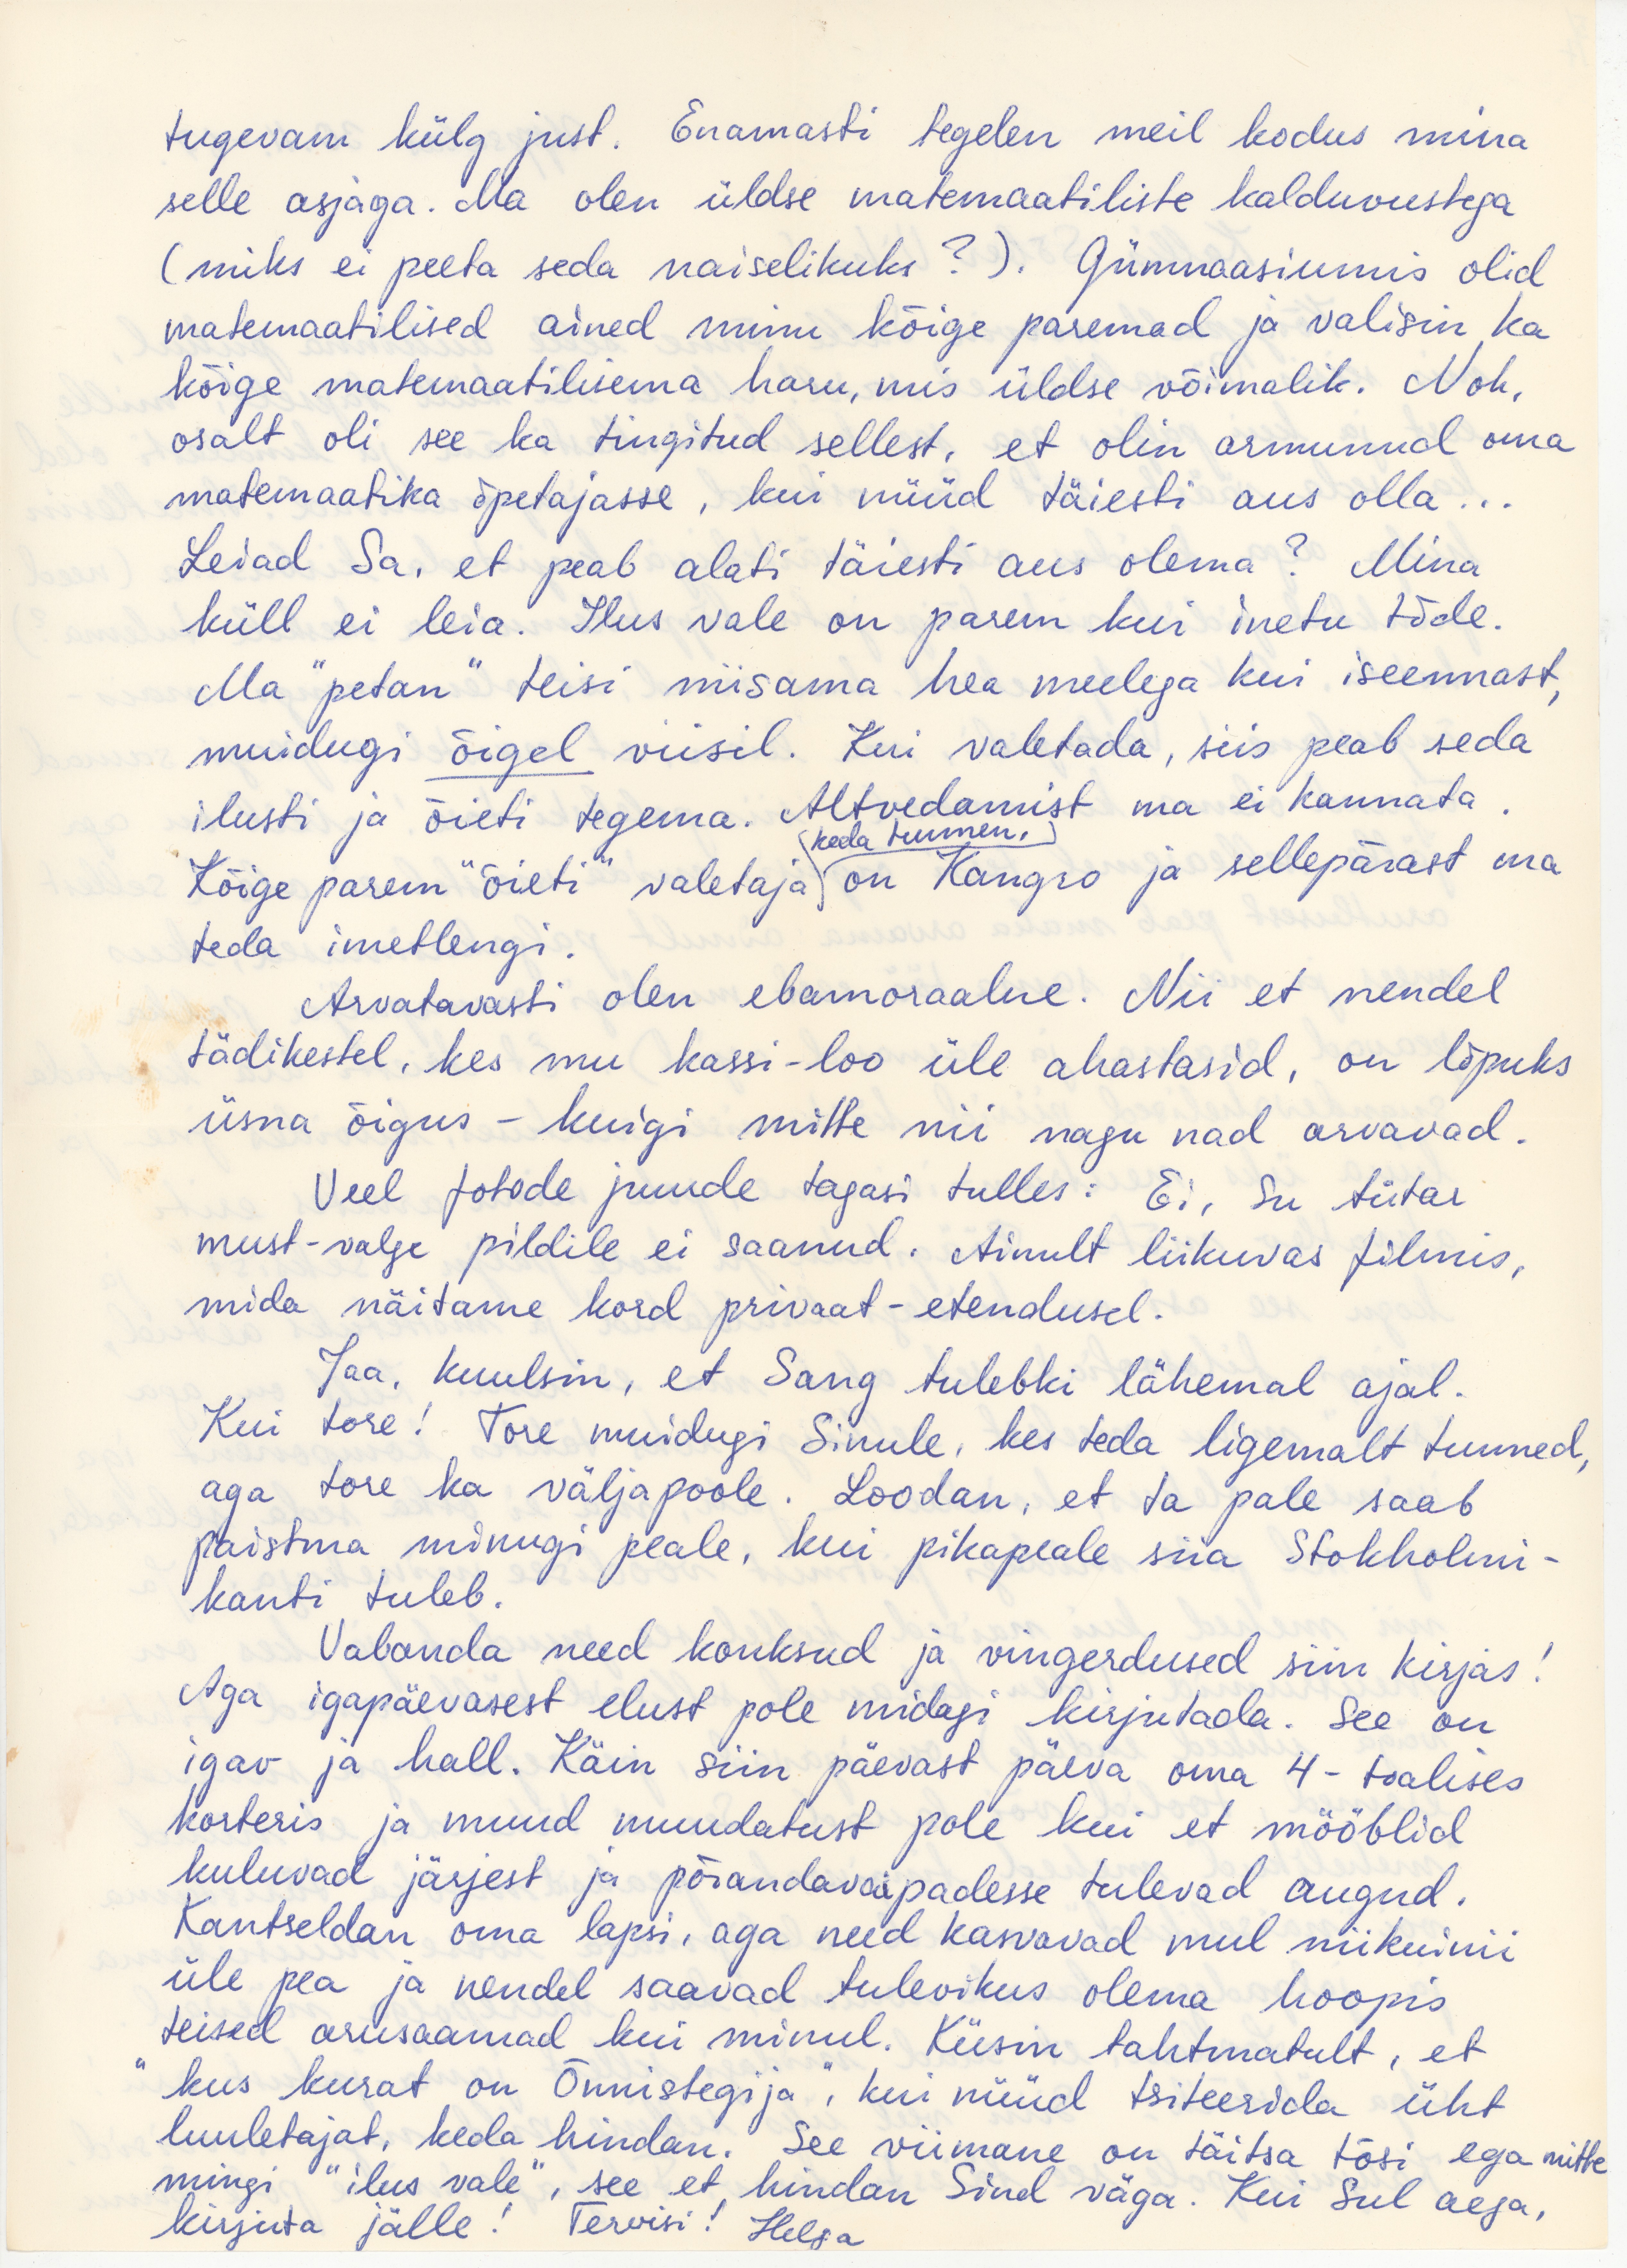 tugevam külg just. Enamasti tegelen meil kodus mina
selle asjaga. Ma olen üldse matemaatiliste kalduvustega
(miks ei peeta seda naiselikuks?). Gümnaasiumis olid
matemaatilised ained minu kõige paremad ja valisin ka
kõige matemaatilisema haru, mis üldse võimalik. Noh,
osalt oli see ka tingitud sellest, et olin armunud oma
matemaatika õpetajasse, kui nüüd täiesti aus olla...
Leiad Sa, et peab alati täiesti aus olema? Mina
küll ei leia. Ilus vale on parem kui inetu tõde.
Ma "petan" teisi niisama hea meelega kui iseennast,
muidugi õigel viisil. Kui valetada, siis peab seda
ilusti ja õieti tegema. Altvedamist ma ei kannata.
keda tunnen,
Kõige parem "õieti" valetaja on Kangro ja sellepärast ma
teda imetlengi.
Arvatavasti olen ebamoraalne. Nii et nendel
tädikestel, kes mu kassi-loo üle ahastasid, on lõpuks
üsna õigus - kuigi mitte nii nagu nad arvavad.
Veel fotode juude tagasi tulles: Ei, Su tütar
must-valge pildile ei saanud. Ainult liikuvas filmis,
mida näitame kord privaat-etendusel.
Jaa, kuulsin, et Sang tulebki lähemal ajal.
Kui tore! Tore muidugi Sinule, kes teda ligemalt tunned,
aga tore ka väljapoole. Loodan, et ta pale saab
paistma minugi peale, kui pikapeale siia Stokholmi-
kanti tuleb.
Vabanda need konksud ja vingerdused siin kirjas!
Aga igapäevasest elust pole midagi kirjutada. See on
igav ja hall. Käin siin päevast päeva oma 4-toalises
korteris ja muud muudatust pole kui et mööblid
kuluvad järjest ja põrandavaipadesse tulevad augud.
Kantseldan oma lapsi, aga need kasvavad mul niikuinii
üle pea ja nendel saavad tulevikus olema hoopis
teised arusaamad kui minul. Küsin tahtmatult, et
"kus kurat on Õnnistegija", kui nüüd tsiteerida üht
luuletajat, keda hindan. See viimane on täitsa tõsi ega mitte
mingi "ilus vale", see et hindan Sind väga. Kui Sul aega,
kirjuta jälle! Tervisi! Helga